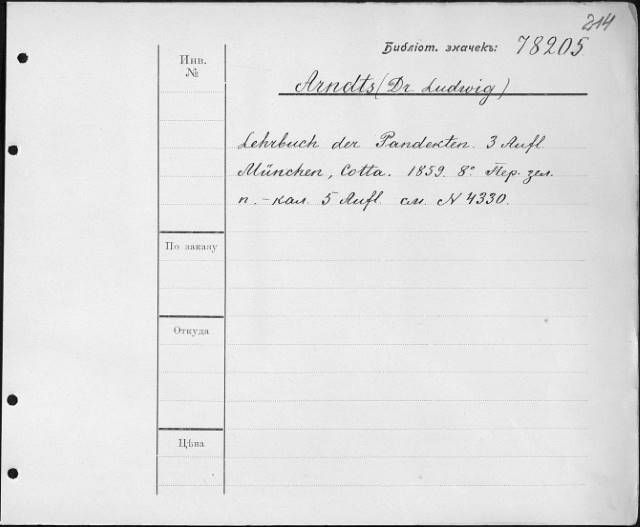 214
Библіот. значекъ: 78205
Инв.
№
Arndts (Dr. Ludwig)
Lehrbuch der Pandekten. 3 Aufl
München, Cotta. 1859. 8° Пер. зел.
п. - кал. 5 Aufl. см. N 4330.
По заказу
Откуда
Цѣна